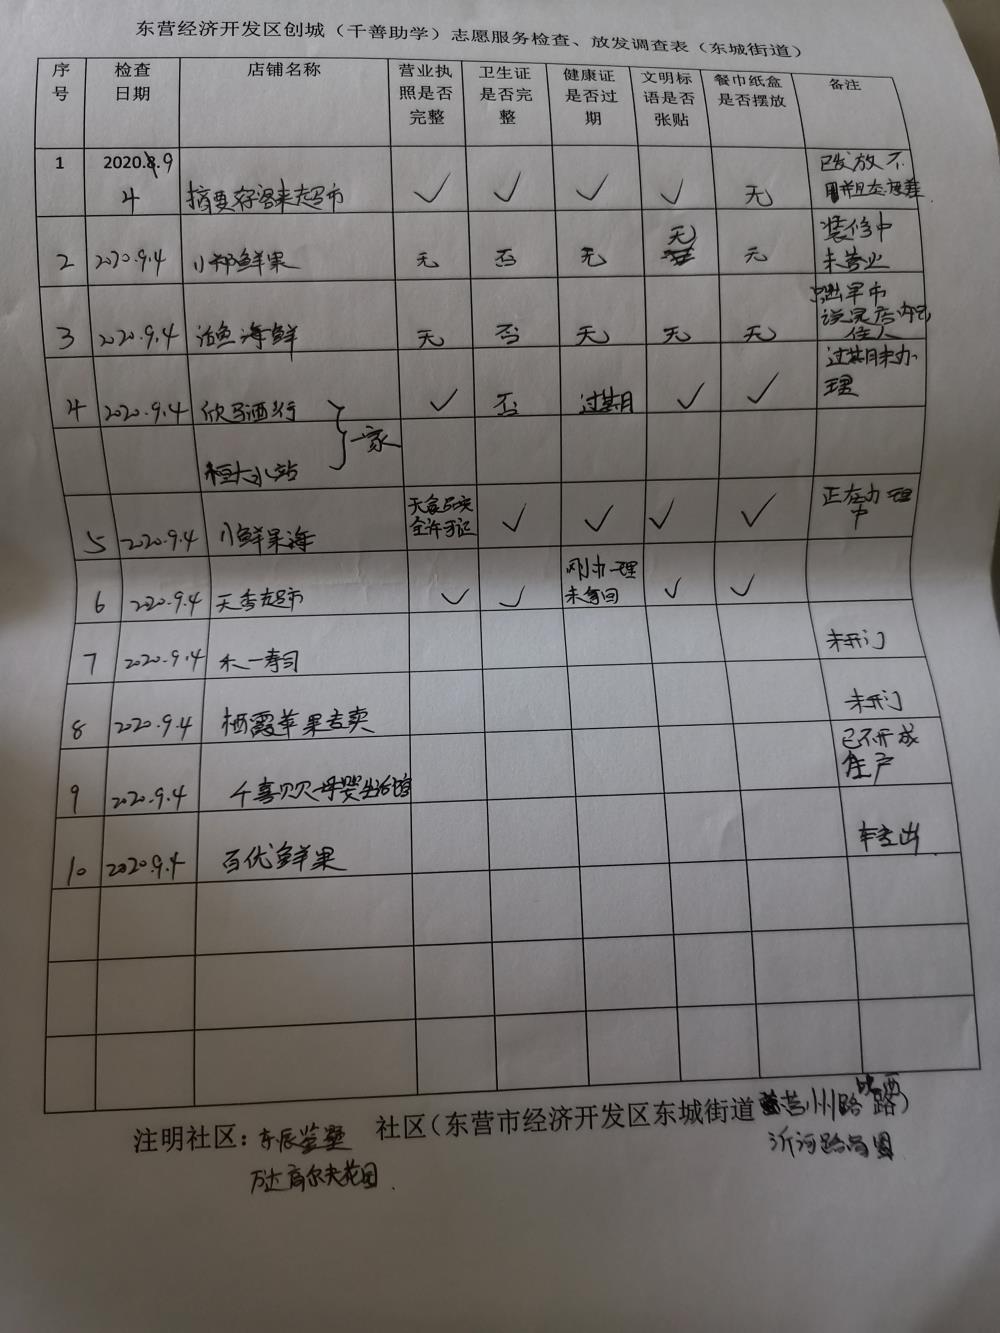 东营经济开发区创城（千善助学）志愿服务检查、放发调查表（东城街道）
序号 检查日期 店铺名称 营业执照是否完整 卫生证是否完整 健康证是否过期 文明标语是否张贴 餐巾纸盒是否摆放 备注
1 2020.8.9 4 客来超市 ✓ ✓ ✓ ✓ 无 已发放不
2 2020.9.4 小郑鲜果 无 否 无 无 无 装修中未营业
3 2020.9.4 活鱼海鲜 无 否 无 无 无 出早市 住人
4 2020.9.4 欣马酒行 一家 ✓ 否 过期 ✓ ✓ 过期未办理
恒大水站
5 2020.9.4 小鲜果海 无食品安全许可证 ✓ ✓ ✓ ✓ 正在办理中
6 2020.9.4 天香超市 ✓ ✓ 刚办理未拿回 ✓ ✓
7 2020.9.4 禾一寿司 未开门
8 2020.9.4 栖霞苹果专卖 未开门
9 2020.9.4 千喜贝贝母婴生活馆 已不开 生产
10 2020.9.4 百优鲜果
注明社区：东辰 社区（东营市经济开发区东城街道 州路 西路）
万达高尔夫花园 沂河路